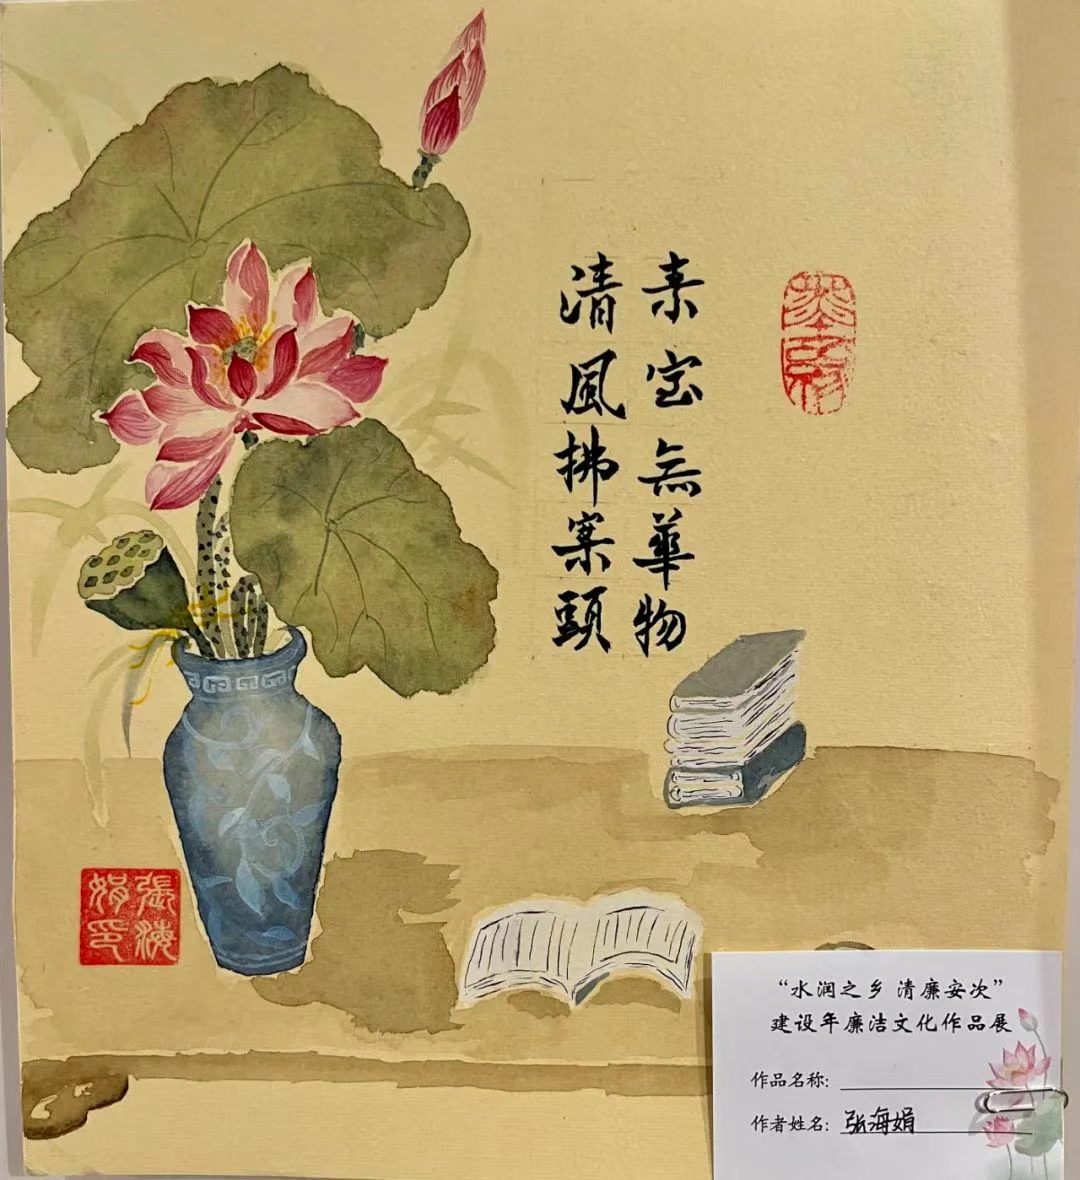 素室無華物
清風拂案頭
張海
娟印
“水润之乡 清廉安次”
建设年廉洁文化作品展
作品名称:
作者姓名: 张海娟